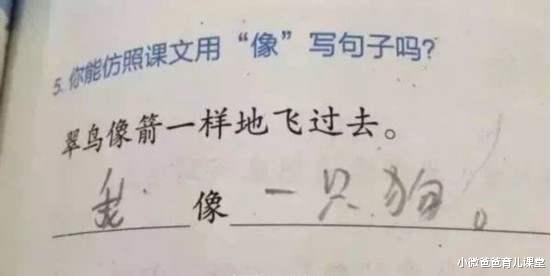 5. 你能仿照课文用“像”写句子吗?
翠鸟像箭一样地飞过去。
我 像 一只狗。
小微爸爸育儿课堂